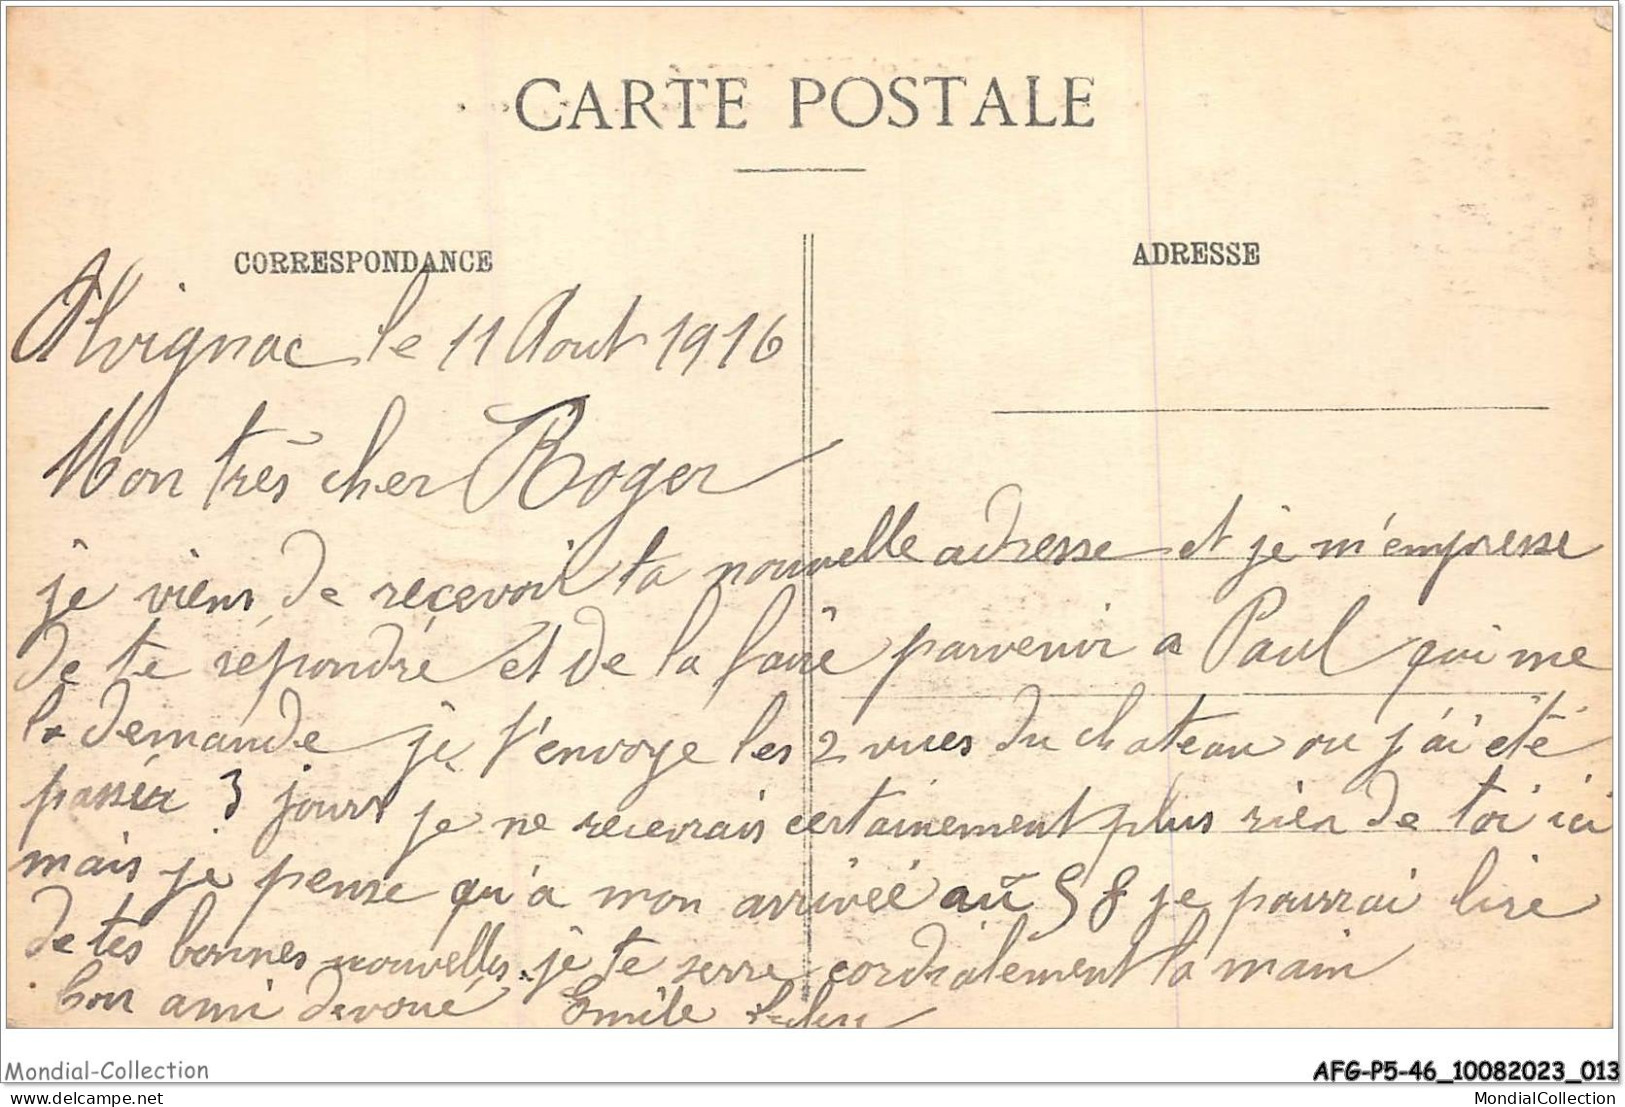 CARTE POSTALE
CORRESPONDANCE
ADRESSE
Alvignac le 11 Aout 1916
Mon très cher Roger
je viens de recevoir ta nouvelle adresse et je m'empresse
de te répondre et de la faire parvenir a Paul qui me
la demande je t'envoye les 2 vues du chateau ou j'ai été
passer 3 jours je ne recevrais certainement plus rien de toi ici
mais je pense qu'a mon arrivée au 58 je pourrai lire
de tes bonnes nouvelles. je te serre cordialement la main
ton ami devoué Emile
Mondial-Collection
AFG-P5-46_10082023_013
delcampe.net
MondialCollection